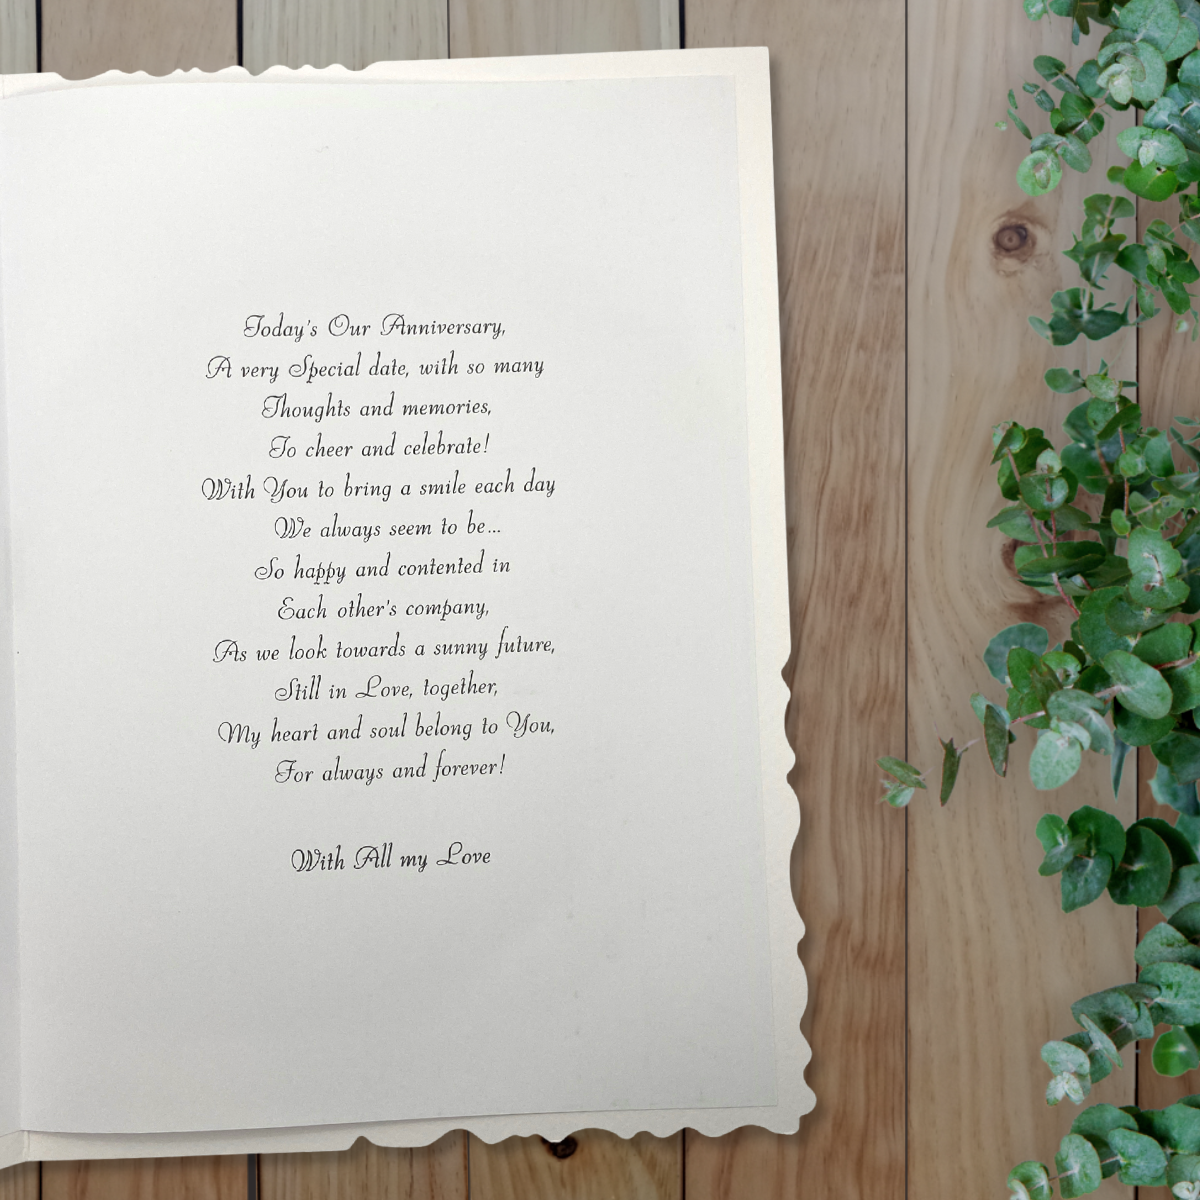 Today's Our Anniversary,
A very Special date, with so many
Thoughts and memories,
To cheer and celebrate!
With You to bring a smile each day
We always seem to be...
So happy and contented in
Each other's company,
As we look towards a sunny future,
Still in Love, together,
My heart and soul belong to You,
For always and forever!
With All my Love